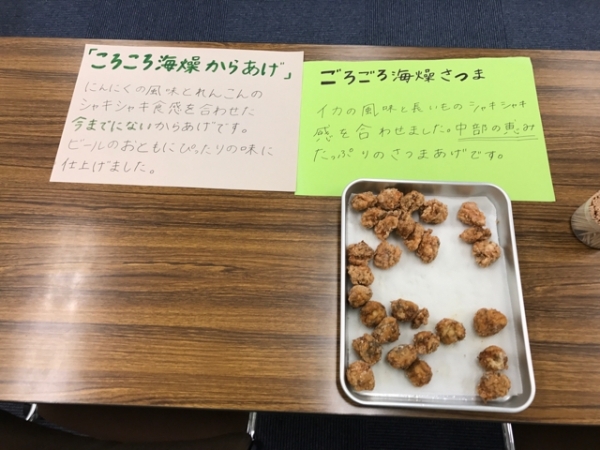 「ころころ海燥からあげ」
にんにくの風味とれんこんの
シャキシャキ食感を合わせた
今までにないからあげです。
ビールのおともにぴったりの味に
仕上げました。
ごろごろ海燥さつま
イカの風味と長いものシャキシャキ
感を合わせました。中部の恵み
たっぷりのさつまあげです。